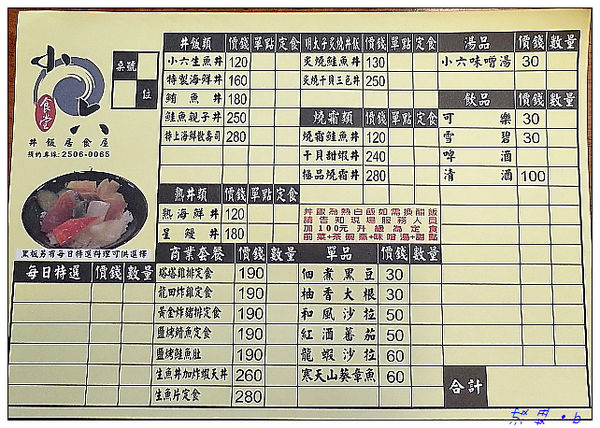 小六
食堂
丼飯居食屋
預約專線:2506-0065
桌號
位
黑板另有每日特選料理可供選擇
每日特選 價錢 數量
丼飯類 價錢 單點 定食
小六生魚丼 120
特製海鮮丼 160
鮪魚丼 180
鮭魚親子丼 250
特上海鮮散壽司 280
熱丼類 價錢 單點 定食
熱海鮮丼 120
星鰻丼 180
明太子炙燒丼飯 價錢 單點 定食
炙燒鮭魚丼 130
炙燒干貝三色丼 250
燒霜類 價錢 單點 定食
燒霜鮭魚丼 120
干貝甜蝦丼 240
極品燒霜丼 280
丼飯為熱白飯如需換醋飯
請告知現場服務人員
加100元升級為定食
前菜+茶碗蒸+味噌湯+甜點
商業套餐 價錢 數量
塔塔雞排定食 190
龍田炸雞定食 190
黃金炸豬排定食 190
鹽烤鯖魚定食 190
鹽烤鮭魚肚 190
生魚丼加炸蝦天丼 260
生魚片定食 280
單品 價錢 數量
佃煮黑豆 30
柚香大根 30
和風沙拉 50
紅酒蕃茄 50
龍蝦沙拉 60
寒天山葵章魚 60
湯品 價錢 數量
小六味噌湯 30
飲品 價錢 數量
可樂 30
雪碧 30
啤酒
清酒 100
合計